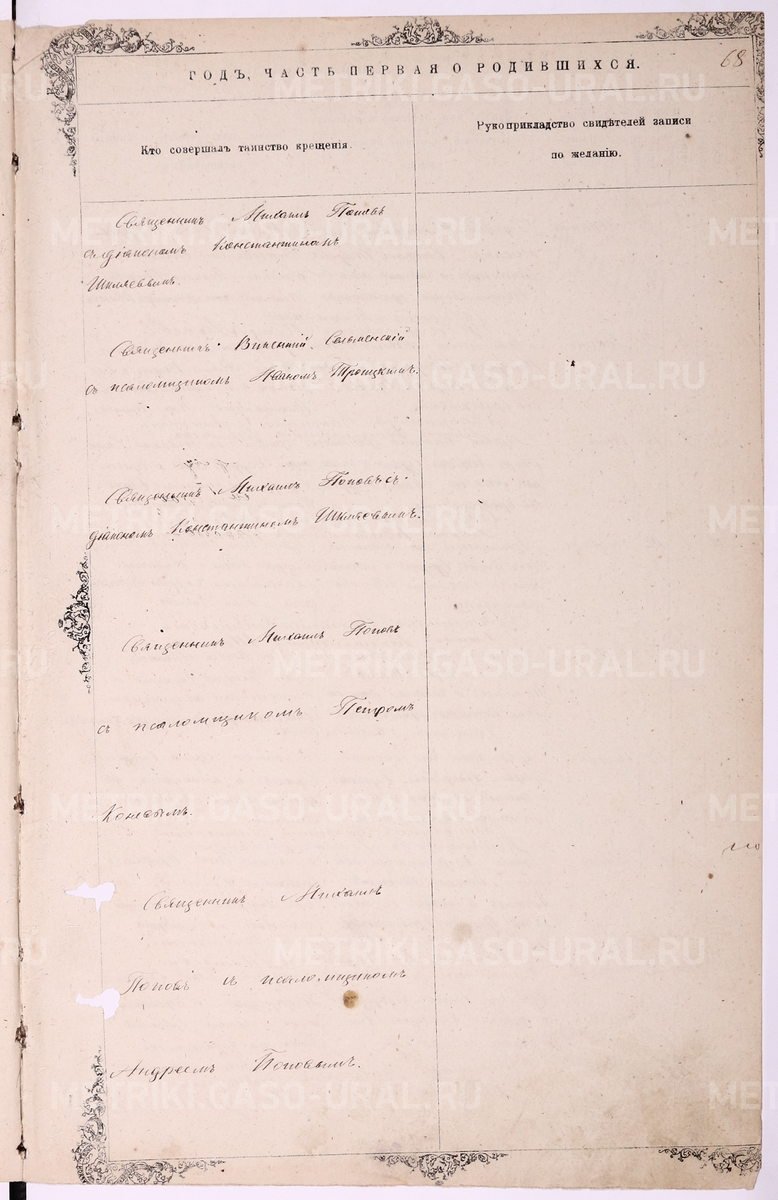 68
ГОДЪ, ЧАСТЬ ПЕРВАЯ О РОДИВШИХСЯ.
Кто совершалъ таинство крещенія.
Рукоприкладство свидѣтелей записи
по желанію.
Священникъ Михаилъ Поповъ
съ діакономъ Константиномъ
Шкляевымъ.
Священникъ
съ псаломщикомъ Іваномъ Троицкимъ.
Священникъ Михаилъ Поповъ съ
діакономъ Константиномъ Шкляевымъ.
Священникъ Михаилъ Поповъ
съ псаломщикомъ Петромъ
Коневымъ.
Священникъ Михаилъ
Поповъ съ псаломщикомъ
Андреемъ Поповымъ.
METRIKI.GASO-URAL.RU